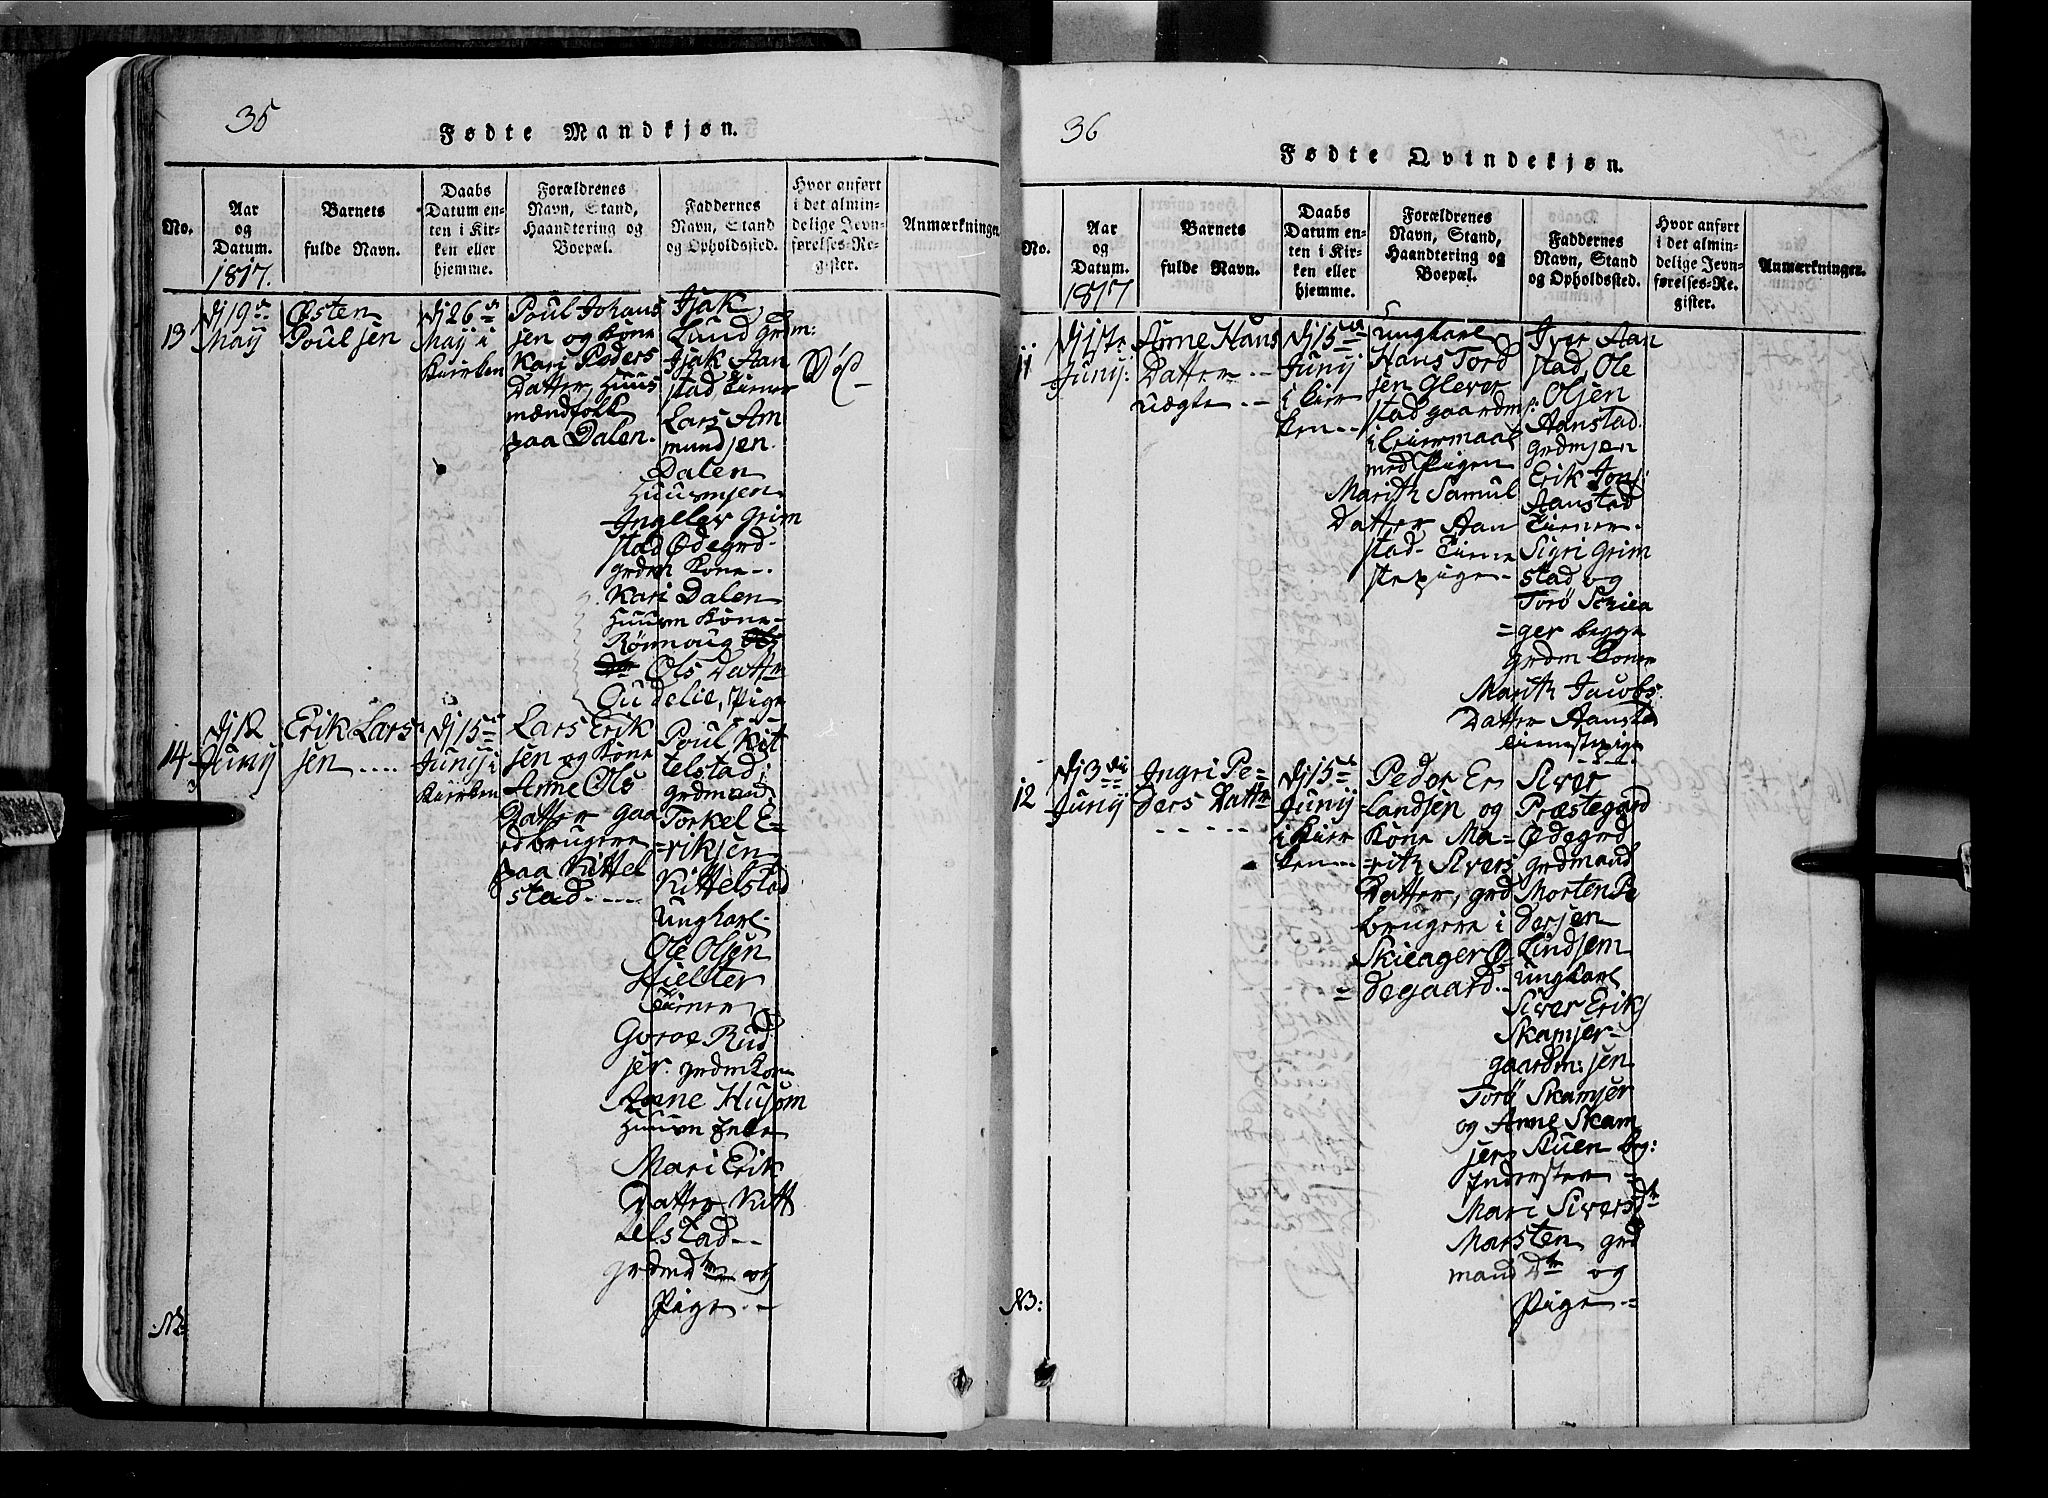 35
Fødte Mandkjøn.
No.
Aar
og
Datum.
1817.
Barnets
fulde Navn.
Daabs
Datum en-
ten i Kir-
ken eller
hjemme.
Forældrenes
Navn, Stand,
Haandtering og
Boepæl.
Faddernes
Navn, Stand
og Opholdssted.
Hvor anført
i det almin-
delige Jevn-
førelses-Re-
gister.
Anmærkninger
13
19
Maij
Østen
Poulsen
26
Maij i
Kirken
Poul Johans
sen og Kone
Kari Peders
Datter, Huus
mændfolk
paa Dalen.
Isak
Lund grdm:
Isak Aan
stad, tiener
Lars Am
mundsen
Dalen
Huusmsen
Ingelev Grim
stad Ødegrd-
grdm Kone--
Kari Dalen
Huusm Kone-
Rønnoug
Ols Dattr
Oudelie, Pige
Død
14
12
Junij
Erik Lars
sen ....
15
Junij i
Kirken
Lars Erik
sen og Kone
Anne Ols
Datter gaa
rdbrugere
paa Kittel
stad....
Poul Kit
telstad
grdmand
Torkel E=
=riksen
Kittelstad
ungkarl-
Ole Olsen
Hielter
tiener
Goroe Rud
ser. grdm Kone
Anne Husom
Huusm Enke
Mari Erik
Datter Kitt
elstad--
grdmd og
Pige --
36
Fødte Qvindekjøn.
No.
Aar
og
Datum.
1817
Barnets
fulde Navn.
Daabs
Datum en-
ten i Kir-
ken eller
hjemme.
Forældrenes
Navn, Stand,
Haandtering og
Boepæl.
Faddernes
Navn, Stand
og Opholdssted.
Hvor anført
i det almin-
delige Jevn-
førelses-Re-
gister.
Anmærkninger.
11
1ste
Junij:
Anne Hans
Datter --
uægte --
15
Junij
i Kir
ken --
ungkarl
Hans Tord
sen Glever
stad gaardm s:
i Leiermaal
med Pigen
Marith Samul
Datter Aan
stad- tiene
stepige-
Iver Aan
stad, Ole
Olsen
Aanstad.
grdmsen
Erik Jons:
Aanstad
tiener-
Sigri Grim
stad og
Torø Skiea
=ger begge
grdm Koner
Marith Jacobs
Datter Aanstad
tienestepige
12
3
Junij
Ingri Pe=
ders Dattr
15
Junij
i Kir
ken --
Peder Er
landsen og
Kone Ma=
=rith Sivers
Datter, grd
brugere i
Skieager Ø=
=degaard --
Siver
Præstegard
Ødegrd
grdmand
Morten Pe
dersen
Lindsem
ungkarl
Siver Eriks
Skamser-
gaardm: sen
Torø Skamser
og Anne Skam
ser Auen beg:
Inderster -
Mari Sivers dtr
Marsten grd
mand Dtr og
Pige --
NB: